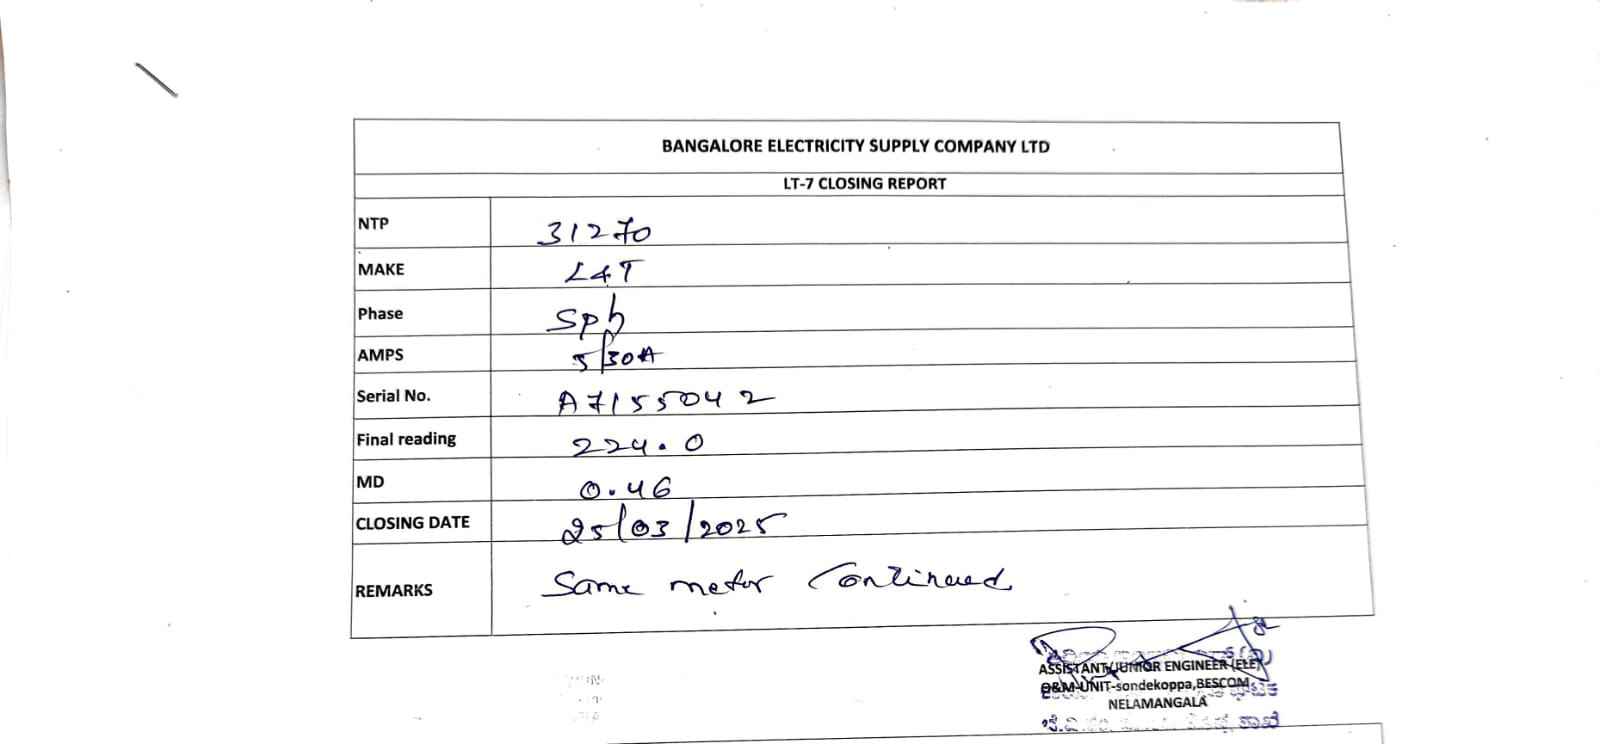 BANGALORE ELECTRICITY SUPPLY COMPANY LTD
LT-7 CLOSING REPORT
NTP 31270
MAKE L&T
Phase Sph
AMPS 5/30A
Serial No. A7155042
Final reading 224.0
MD 0.46
CLOSING DATE 25/03/2025
REMARKS Same meter Continued
ASSISTANT/JUNIOR ENGINEER (ELE)
O&M-UNIT-sondekoppa,BESCOM
NELAMANGALA